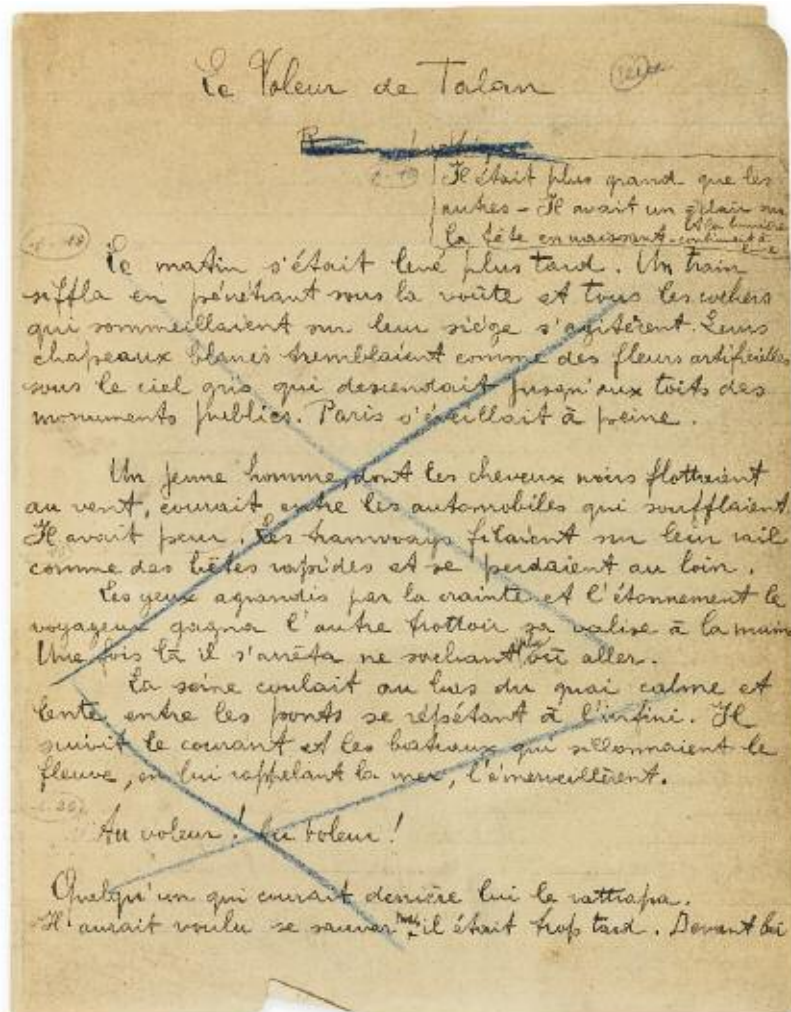 Le Voleur de Talan
Il était plus grand que les
autres - Il avait un éclair sur
la tête en naissant et sa lumière
continuait à
Le matin s'était levé plus tard. Un train
siffla en pénétrant sous la voûte et tous les cochers
qui sommeillaient sur leur siège s'agitèrent. Leurs
chapeaux blancs tremblaient comme des fleurs artificielles
sous le ciel gris qui descendait jusqu'aux toits des
monuments publics. Paris s'éveillait à peine.
Un jeune homme, dont les cheveux noirs flottaient
au vent, courait entre les automobiles qui soufflaient.
Il avait peur. Les tramways filaient sur leur rail
comme des bêtes rapides et se perdaient au loin.
Les yeux agrandis par la crainte et l'étonnement le
voyageur gagna l'autre trottoir sa valise à la main
Une fois là il s'arrêta ne sachant plus où aller.
La seine coulait au bas du quai calme et
lente entre les ponts se répétant à l'infini. Il
suivit le courant et les bateaux qui sillonnaient le
fleuve, en lui rappelant la mer, l'émerveillèrent.
Au voleur! Au voleur!
Quelqu'un qui courait derrière lui le rattrapa.
Il aurait voulu se sauver mais il était trop tard. Devant lui